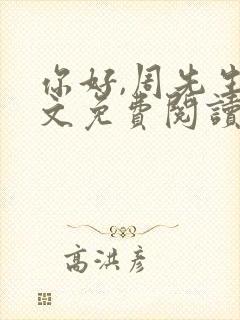 你好,周先生
文免費閱讀
高洪彥